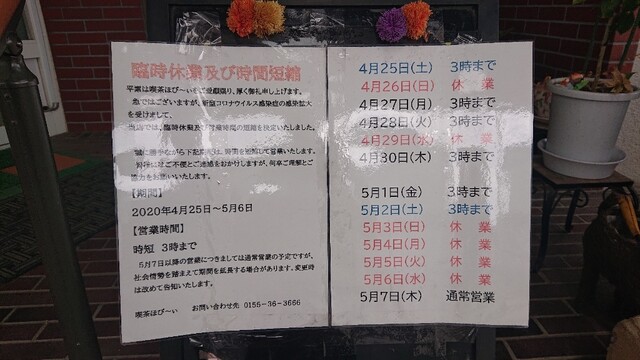 臨時休業及び時間短縮
平素は喫茶ほび～いをご愛顧賜り、厚く御礼申し上げます。
急ではございますが、新型コロナウイルス感染症の感染拡大
を受けまして、
当店では、臨時休業及び営業時間の短縮を決定いたしました。
誠に勝手ながら下記日程は、時間を短縮して営業いたします。
皆様にはご不便とご迷惑をおかけしますが、何卒ご理解とご
協力をお願いいたします。
【期間】
2020年4月25日～5月6日
【営業時間】
時短 3時まで
5月7日以降の営業につきましては通常営業の予定ですが、
社会情勢を踏まえて期間を延長する場合があります。変更時
は改めて告知いたします。
喫茶ほび～い お問い合わせ先 0155-36-3666
4月25日(土) 3時まで
4月26日(日) 休 業
4月27日(月) 3時まで
4月28日(火) 3時まで
4月29日(水) 休 業
4月30日(木) 3時まで
5月1日(金) 3時まで
5月2日(土) 3時まで
5月3日(日) 休 業
5月4日(月) 休 業
5月5日(火) 休 業
5月6日(水) 休 業
5月7日(木) 通常営業